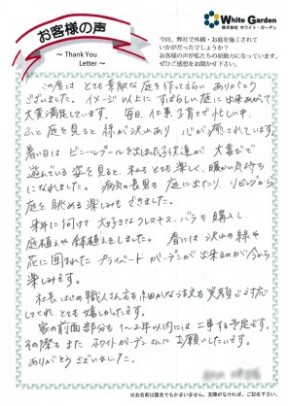 White Garden
株式会社 ホワイト・ガーデン
お客様の声
～ Thank You
Letter ～
今回、弊社で外構・お庭を施工されて
いかがだったでしょうか？
お客様の声が私たちの原動力になっています。
ぜひご感想をお聞かせ下さい。
この度は とても素敵な庭を作って下さい ありがとう
ございました。イメージ以上に すばらしい庭に出来あがって
大変満足しています。毎日、仕事 子育てで 忙しい中、
ふと 庭を見ると 緑が沢山あり 心が癒されています。
暑い日は ビニールプールを出したら子供達が 大喜びで
遊んでいる 姿を見ると、私も とても 楽しく、暖かい気持ち
になれました。病気の長男も 庭に出たり、リビングから
庭を眺める 楽しみも できました。
来年に向けて 大好きな クレマチス、バラも 購入し、
庭植えや 鉢植えをしました。春には 沢山の緑や
花に囲まれた プライベートガーデンが 出来るのが今から
楽しみです。
社長はじめ 職人さん方も 細かな注文も 笑顔で対応
してくれ とても 嬉しかったです。
家の前面部分も 1～2年以内には 工事する予定です。
その際も また ホワイトガーデンさんに お願いしたいです。
ありがとうございました。
※お名前は匿名でもかまいません。支障がなければ、ご記名下さい。